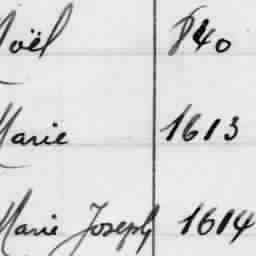 Noël 840
Marie 1613
Marie Joseph 1614